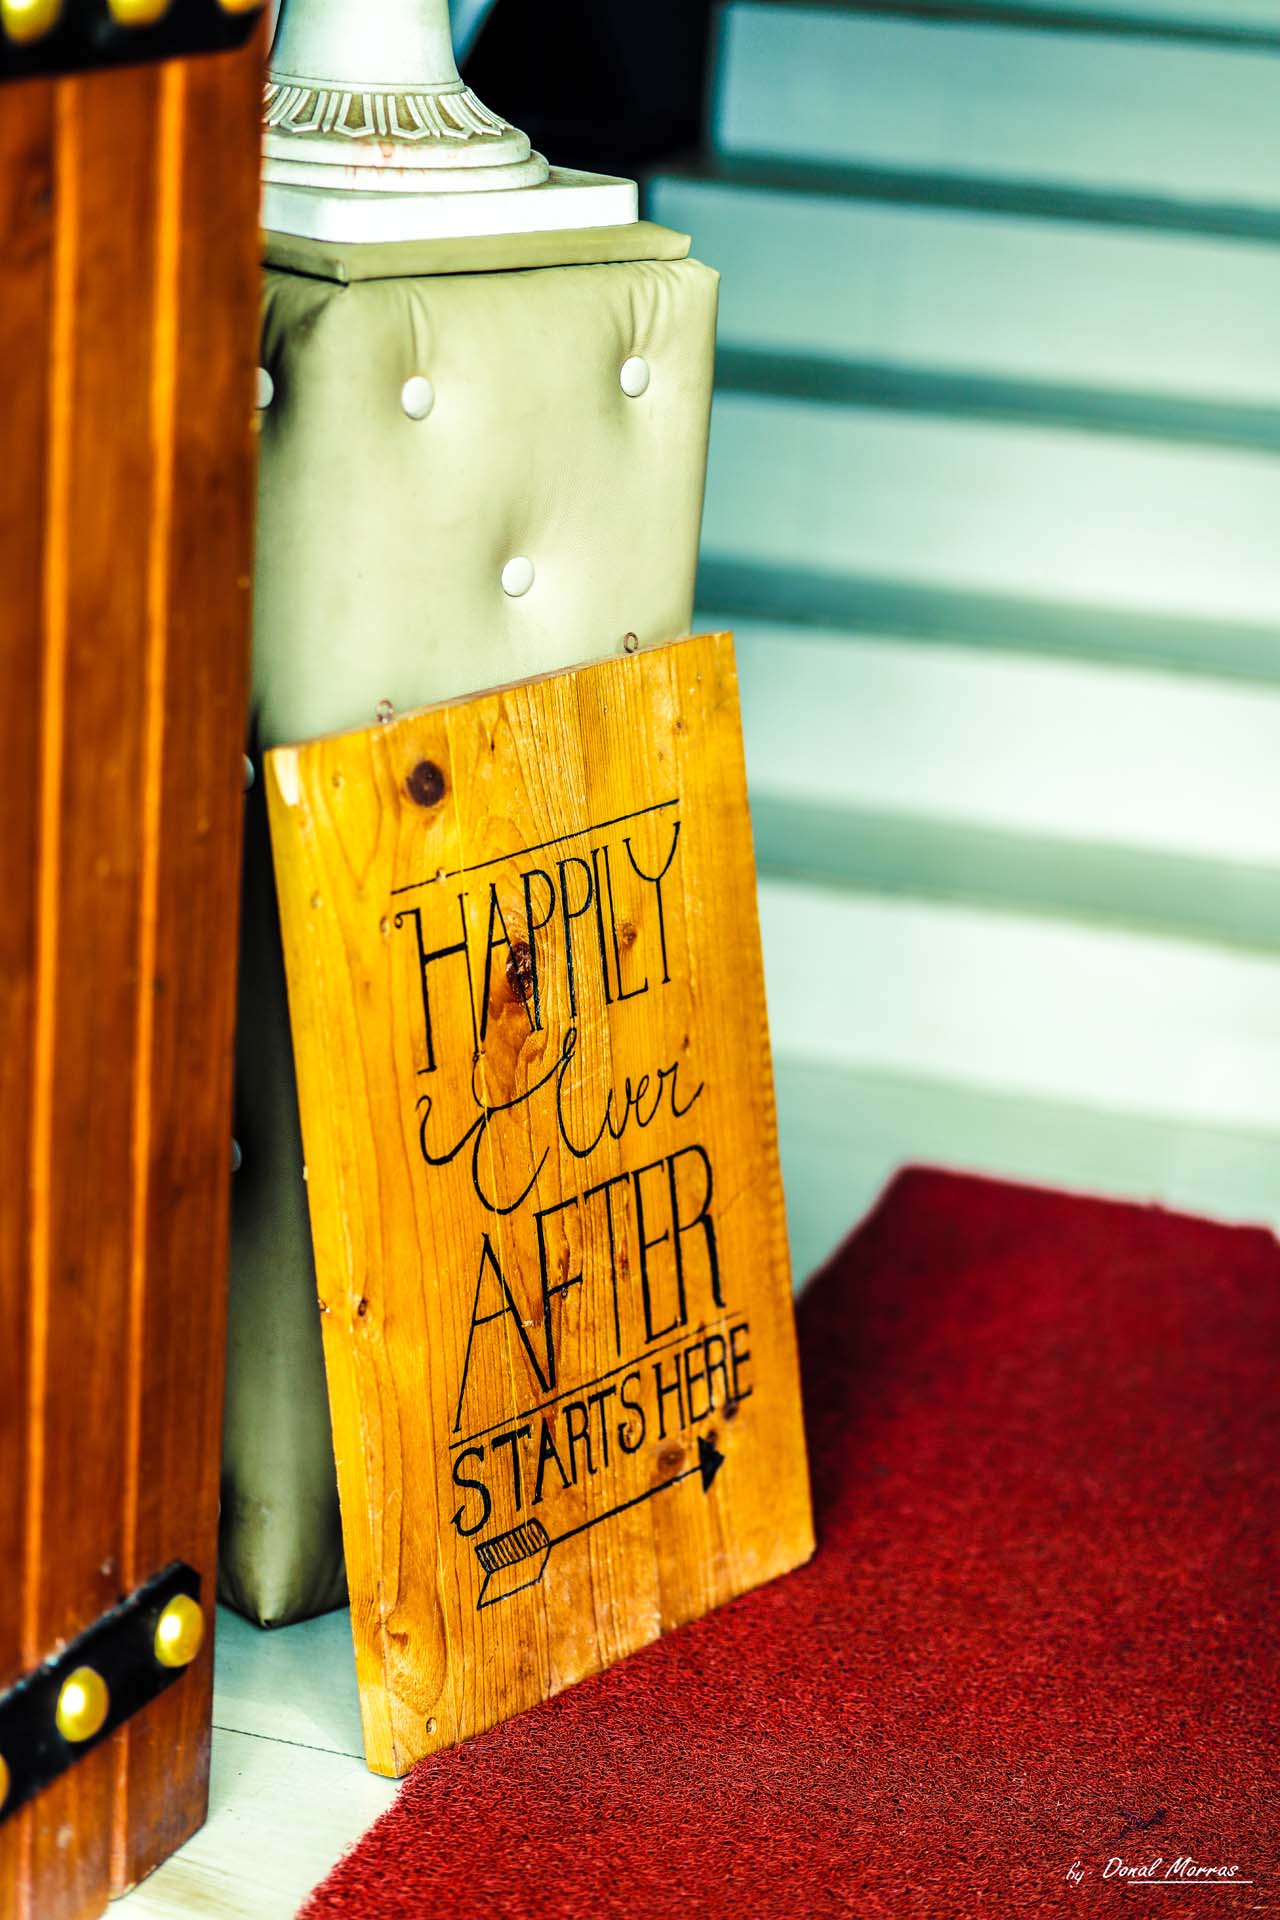 HAPPILY
Ever
AFTER
STARTS HERE
by. Donal Morras